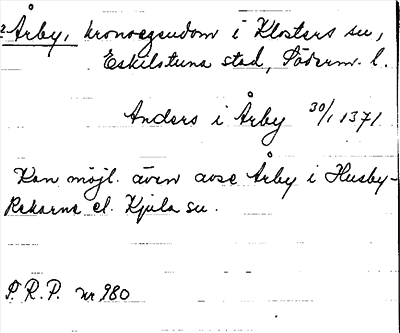 ? Årby, kronoegendom i Klosters sn,
Eskilstuna stad, Söderm. l.
Anders i Årby 30/1 1371
Kan möjl. även avse Årby i Husby-
Rekarne el. Kjula sn.
P. R. P. nr 980